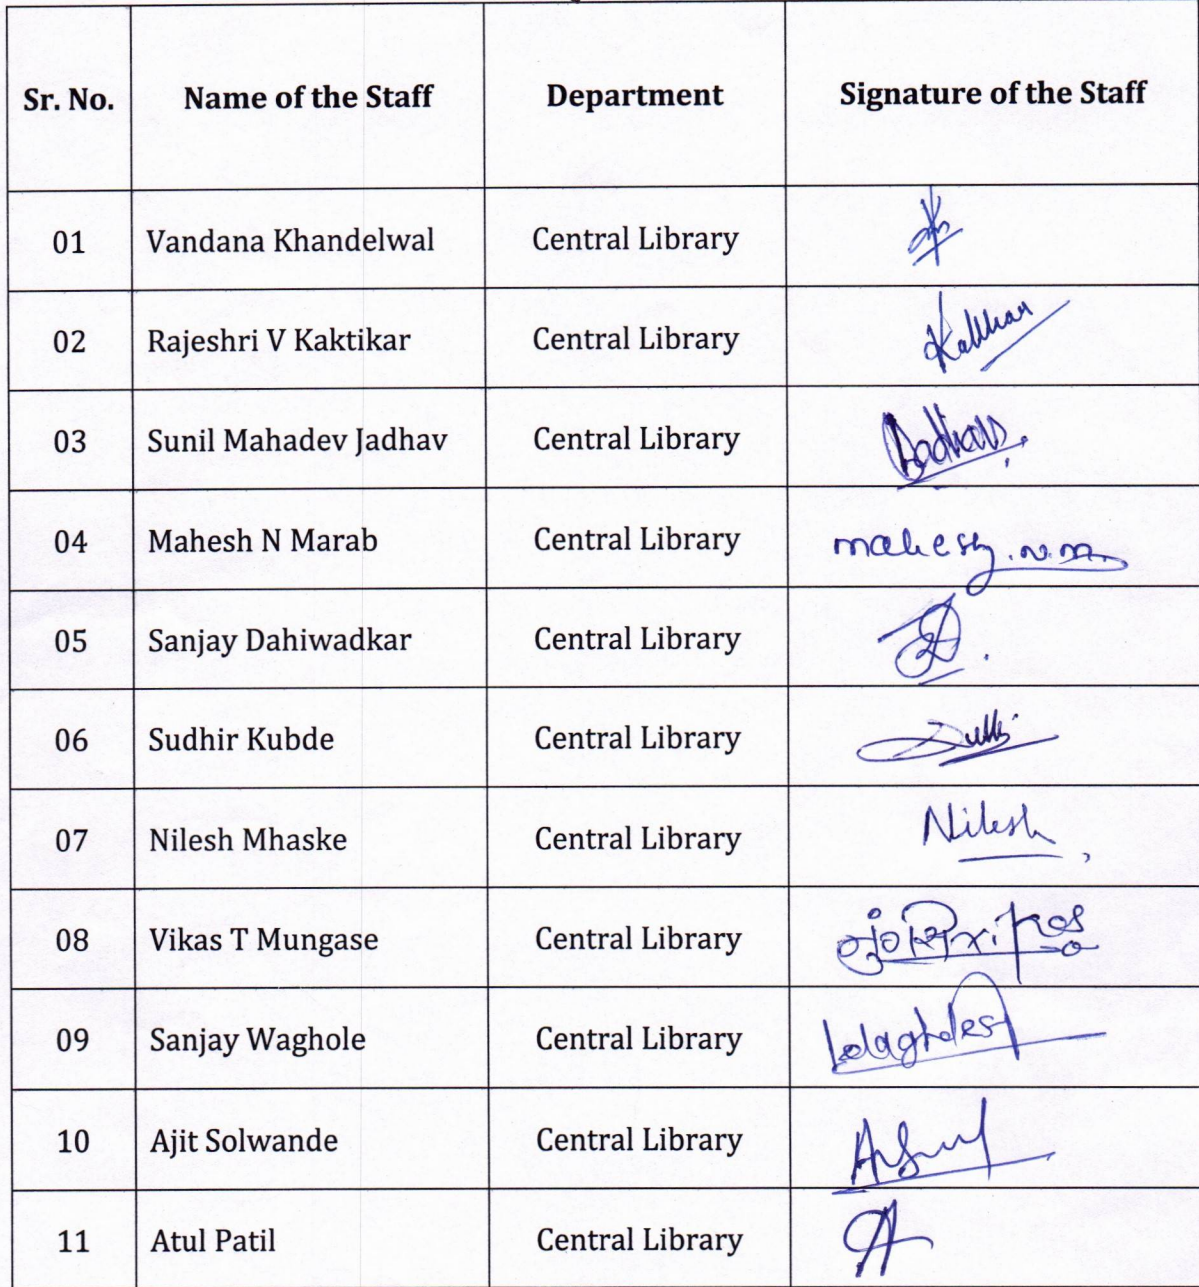 Sr. No. Name of the Staff Department Signature of the Staff
01 Vandana Khandelwal Central Library
02 Rajeshri V Kaktikar Central Library
03 Sunil Mahadev Jadhav Central Library
04 Mahesh N Marab Central Library mahesh.n.m.
05 Sanjay Dahiwadkar Central Library
06 Sudhir Kubde Central Library
07 Nilesh Mhaske Central Library Nilesh
08 Vikas T Mungase Central Library
09 Sanjay Waghole Central Library
10 Ajit Solwande Central Library
11 Atul Patil Central Library